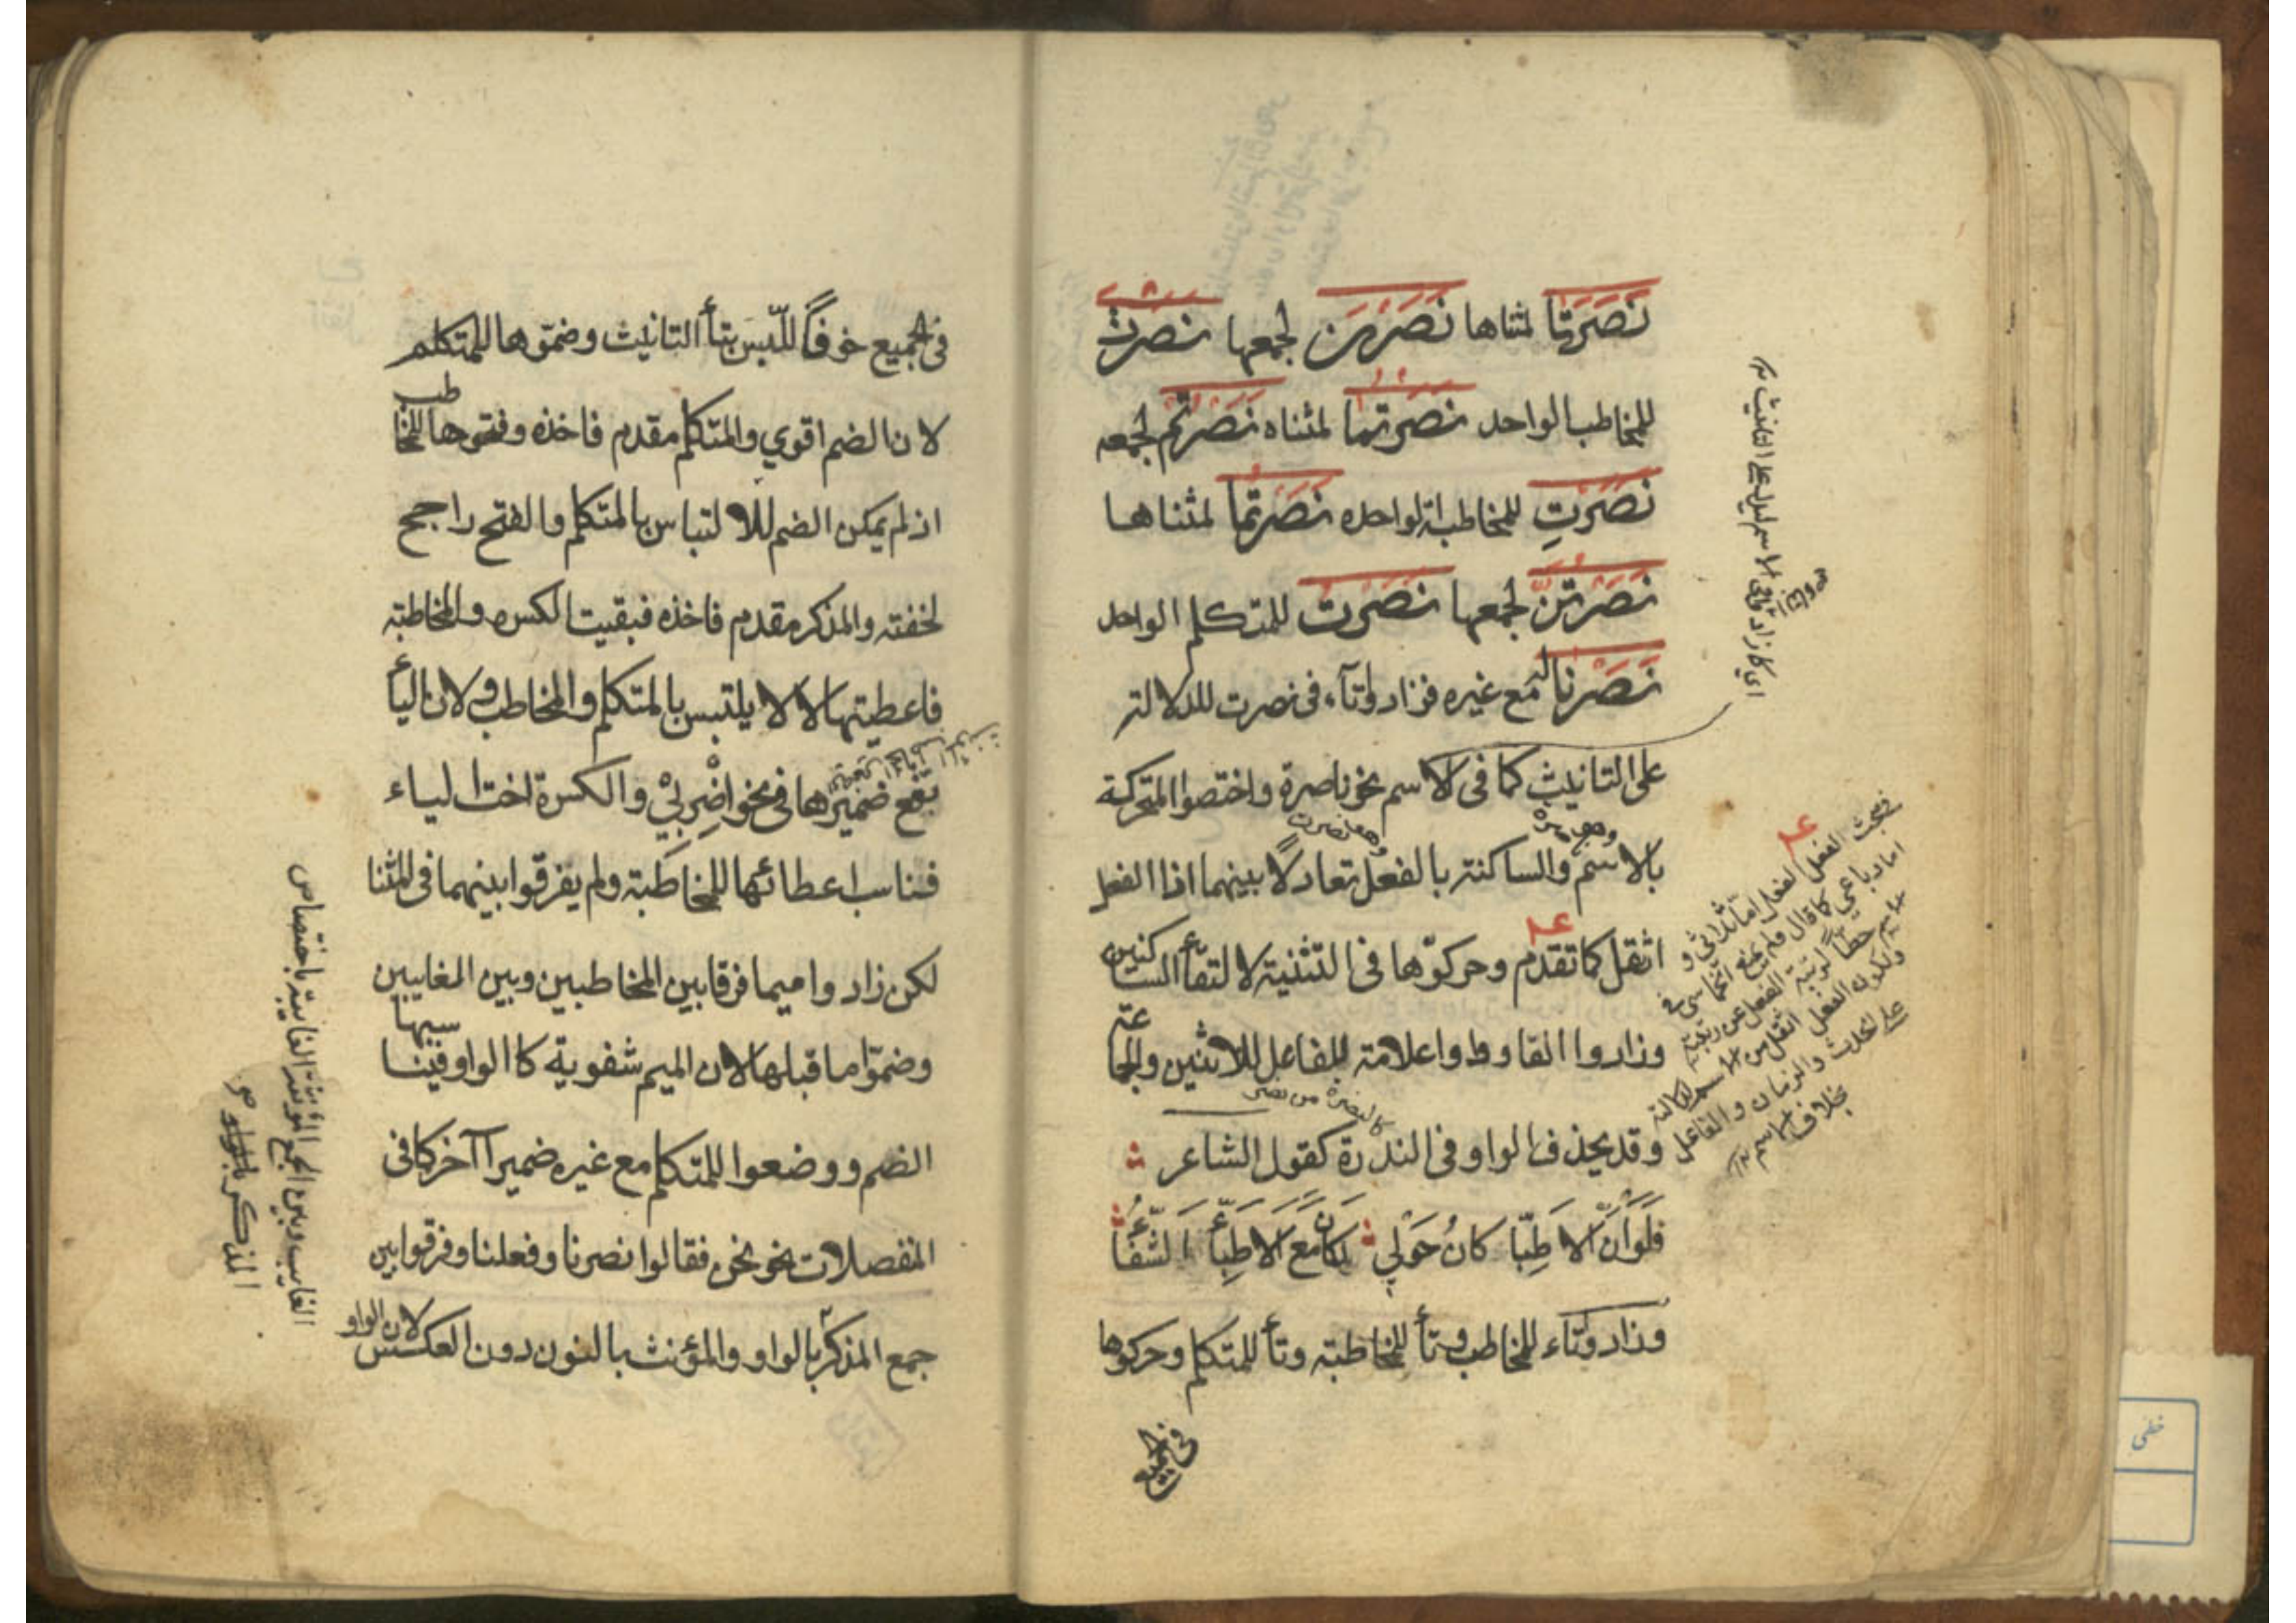 نَصَرَتَا لمثناها نَصَرْنَ لجمعها نَصَرْتَ
للمخاطب الواحد نَصَرْتُمَا لمثناه نَصَرْتُمْ لجمعه
نَصَرْتِ للمخاطبة الواحده نَصَرْتُمَا لمثناها
نَصَرْتُنَّ لجمعها نَصَرْتُ للمتكلم الواحد
نَصَرْنَا له مع غيره فزادوا تآء في نصرت للدلالة
على التانيث كما في الاسم نحو ناصرة واختصوا المتحركة
بالاسم والساكنة بالفعل تعادلاً بينهما اذا الفعل
اثقل كما تقدم وحركوّها في التثنية لالتقأ الساكنين
وزادوا الفا وواوا علامة للفاعل للاثنين والجماعة
وقد يحذف الواو في الندرة كقول الشاعر
فَلَوَانَّ الاَطِبّا كانُ حَوْلي لكان مَعَ الاَطِبّأ الشّفَأُ
وزادوا تاء للمخاطب وتأ للمخاطبة وتأ للمتكلم وحركوها
في الجميع
اي كما زاد في الاسم ليدل على التانيث
فبحث الفعل
اما رباعي كما قال
ولكون الفعل اثقل من الاسم لدلالته
على الحدث والزمان والفاعل
بخلاف الاسم
في الجميع خوفاً للّبس بتأ التانيث وضمّوها للمتكلم
لان الضم اقوي والمتكلم مقدم فاخذه وفتحوها للمخاطب
اذ لم يمكن الضم للالتباس بالمتكلم والفتح راجح
لخفته والمذكر مقدم فاخذه فبقيت الكسره وللمخاطبة
فاعطيتها لالا يلتبس بالمتكلم والمخاطب ولان اليأ
يقع ضميرها في نحو اضْرِبِيْ والكسرة اخت الياء
فناسب اعطائها للمخاطبة ولم يفرقوا بينهما في المثنا
لكن زادوا ميما فرقا بين المخاطبين وبين المغايبين
وضمّوا ما قبلها لان الميم شفوية كاالواو فيناسبها
الضم ووضعوا للمتكلم مع غيره ضميرا آخر كما في
المنفصلات نحو نحن فقالوا نصرنا وفعلنا وفرقوا بين
جمع المذكر بالواو والمؤنث بالنون دون العكس لان الواو
الغايب وبين الجمع المؤنث الغايبة باختصاص
المذكر بالواو
خطي